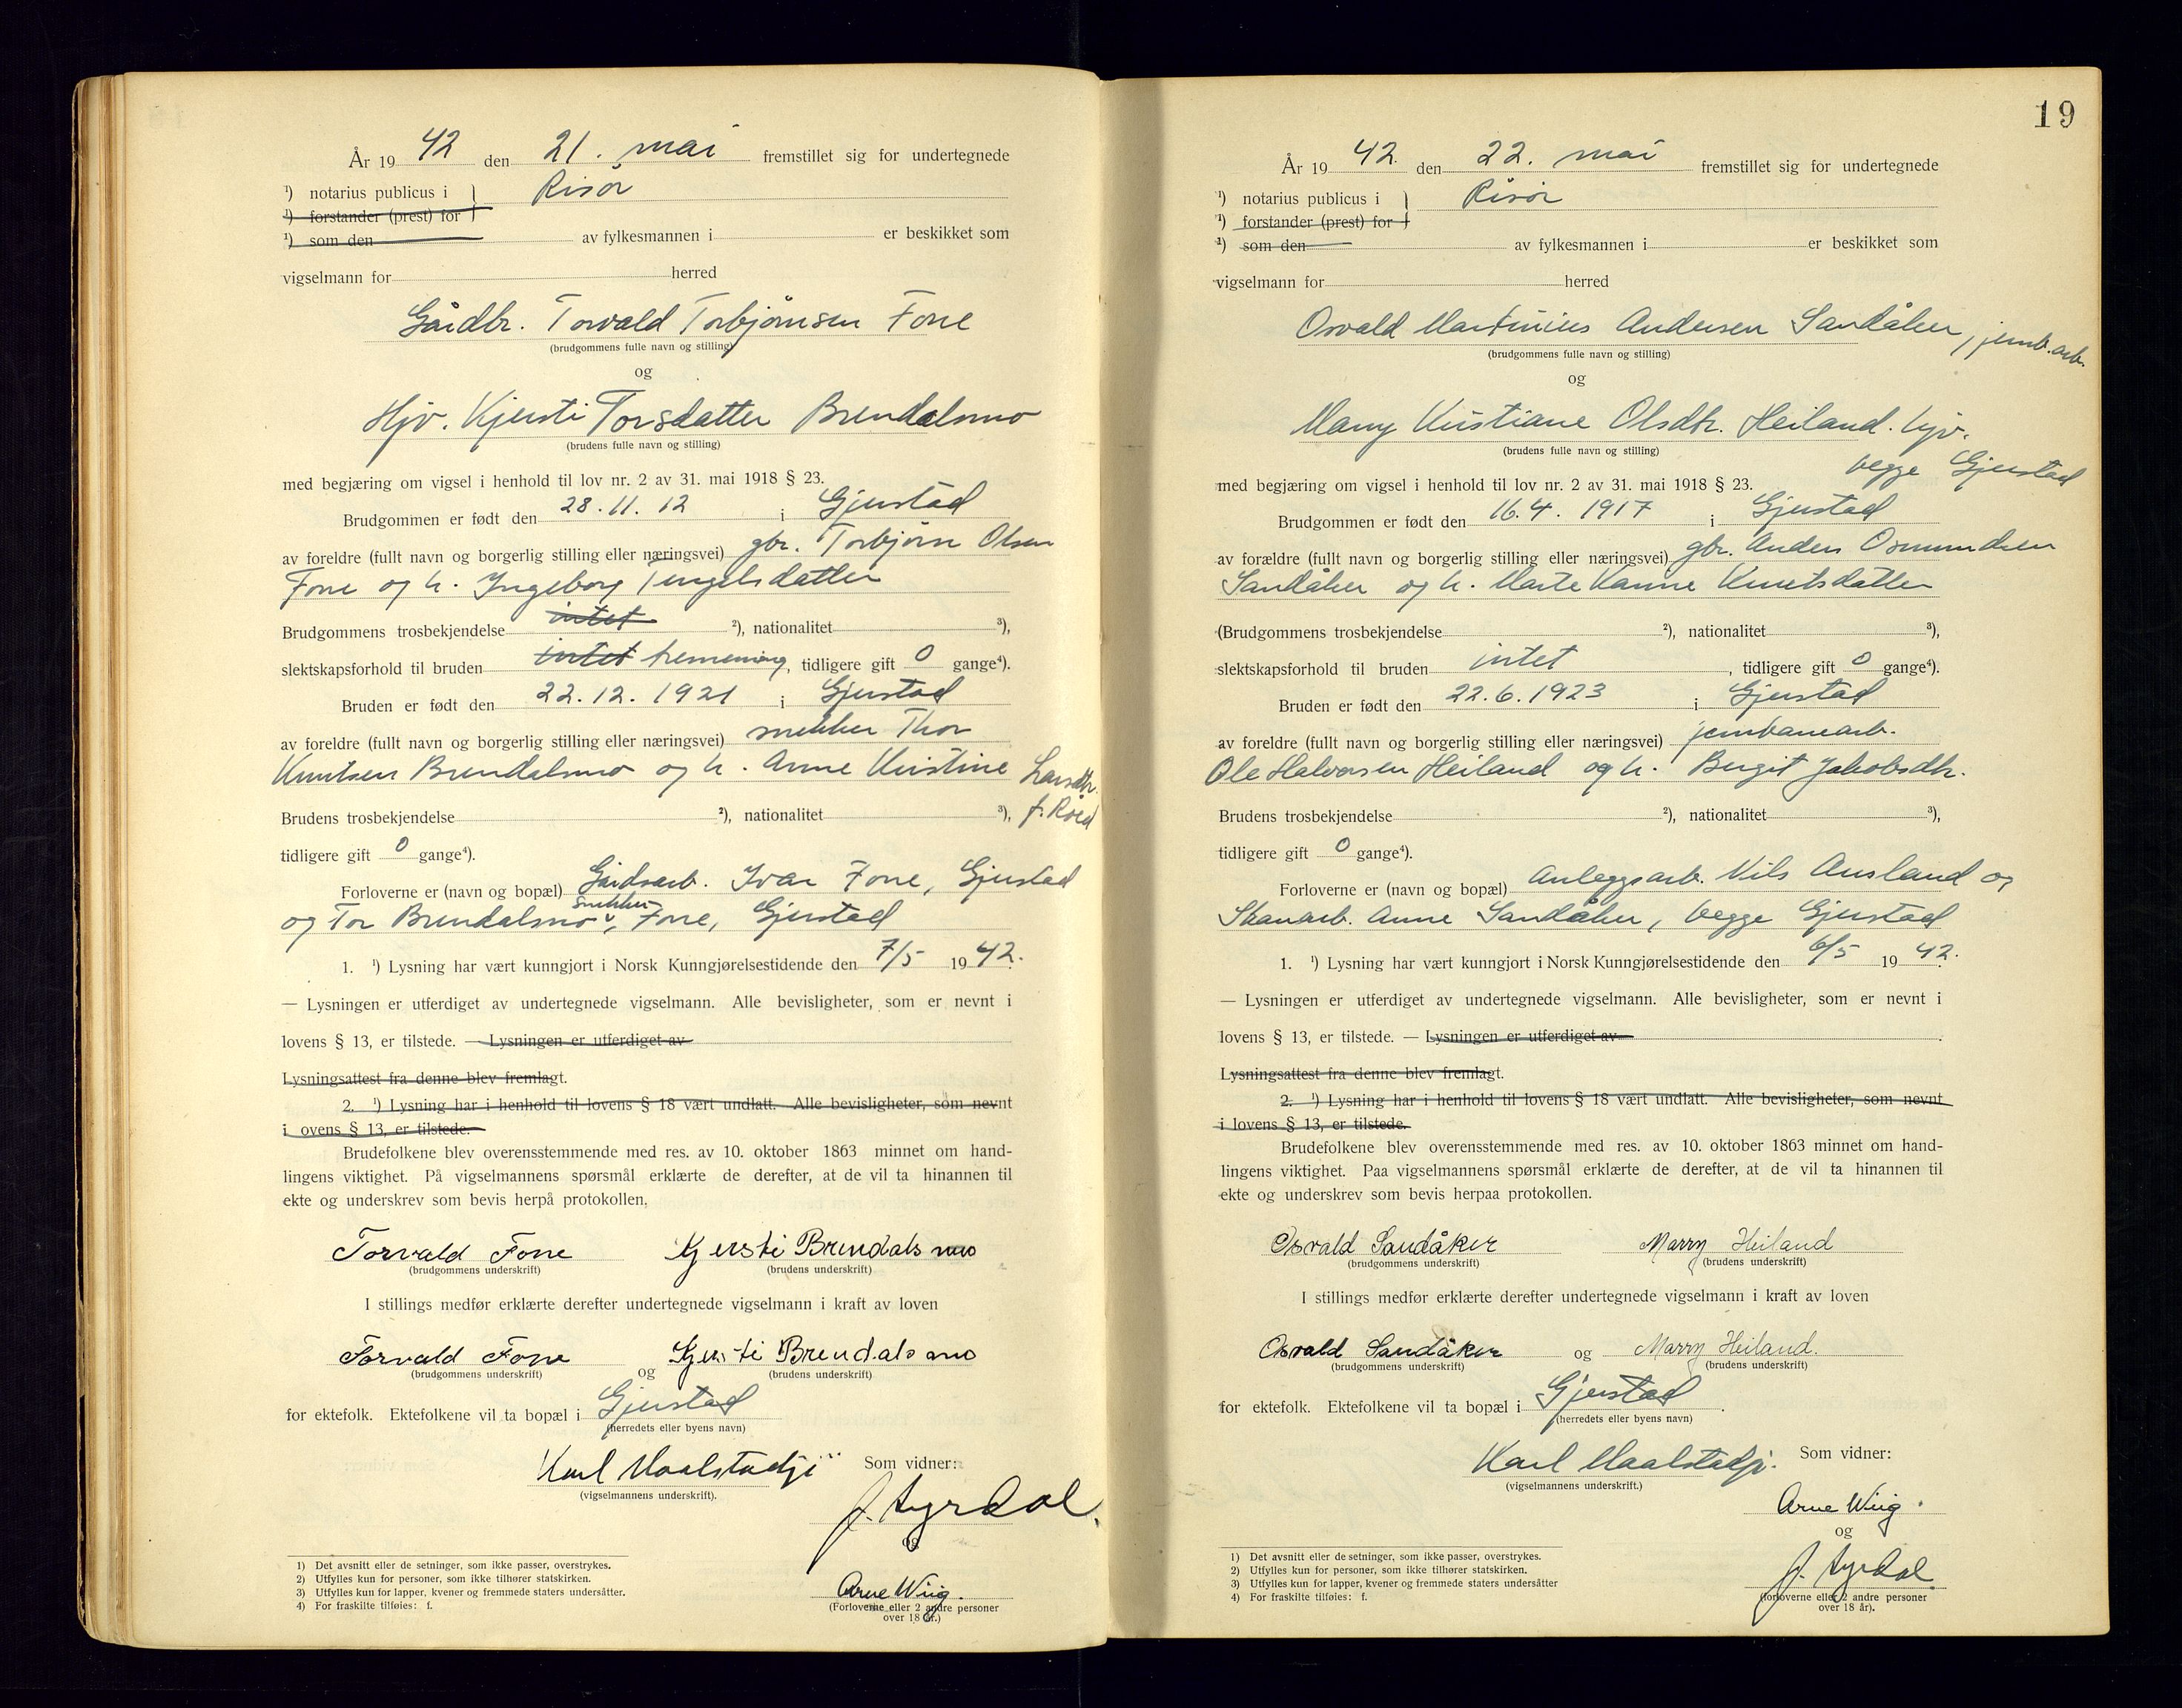 År 19 42 den 21. mai fremstillet sig for undertegnede
¹) notarius publicus i } Risør
¹) forstander (prest) for
¹) som den av fylkesmannen i er beskikket som
vigselmann for herred
Gårdbr. Torvald Torbjørnsen Fone
(brudgommens fulle navn og stilling)
og
Hjv. Kjersti Torsdatter Brendalsmo
(brudens fulle navn og stilling)
med begjæring om vigsel i henhold til lov nr. 2 av 31. mai 1918 § 23.
Brudgommen er født den 28.11.12 i Gjerstad
av foreldre (fullt navn og borgerlig stilling eller næringsvei) gbr. Torbjørn Olsen
Fone og h. Ingeborg Tengelsdatter
Brudgommens trosbekjendelse intet ²), nationalitet ³),
slektskapsforhold til bruden intet tremening, tidligere gift 0 gange⁴).
Bruden er født den 22.12.1921 i Gjerstad
av foreldre (fullt navn og borgerlig stilling eller næringsvei) snekker Thor
Knutsen Brendalsmo og h. Anne Kristine Larsdtr.
Brudens trosbekjendelse ²), nationalitet ³), f. Röed
tidligere gift 0 gange⁴).
Forloverne er (navn og bopæl) Gårdsarb. Ivar Fone, Gjerstad
snekker
og Tor Brendalsmo, Fone, Gjerstad
1. ¹) Lysning har vært kunngjort i Norsk Kunngjørelsestidende den 7/5 19 42.
— Lysningen er utferdiget av undertegnede vigselmann. Alle bevisligheter, som er nevnt i
lovens § 13, er tilstede. — Lysningen er utferdiget av
Lysningsattest fra denne blev fremlagt.
2. ¹) Lysning har i henhold til lovens § 18 vært undlatt. Alle bevisligheter, som nevnt
i ovens § 13, er tilstede.
Brudefolkene blev overensstemmende med res. av 10. oktober 1863 minnet om hand-
lingens viktighet. På vigselmannens spørsmål erklærte de derefter, at de vil ta hinannen til
ekte og underskrev som bevis herpå protokollen,
Torvald Fone Kjersti Brendalsmo
(brudgommens underskrift) (brudens underskrift)
I stillings medfør erklærte derefter undertegnede vigselmann i kraft av loven
Torvald Fone og Kjersti Brendalsmo
(brudgommens underskrift) (brudens underskrift)
for ektefolk. Ektefolkene vil ta bopæl i Gjerstad
(herredets eller byens navn)
Karl Maalstadji Som vidner:
(vigselmannens underskrift).
J. Tyrdal.
og
Arne Wiig.
(Forloverne eller 2 andre personer
over 18 år.)
1) Det avsnitt eller de setninger, som ikke passer, overstrykes.
2) Utfylles kun for personer, som ikke tilhører statskirken.
3) Utfylles kun for lapper, kvener og fremmede staters undersåtter.
4) For fraskilte tilføies: f.
19
År 19 42. den 22. mai fremstillet sig for undertegnede
¹) notarius publicus i } Risør
¹) forstander (prest) for
¹) som den av fylkesmannen i er beskikket som
vigselmann for herred
Osvald Martinius Andersen Sandåker, jernb.arb.
(brudgommens fulle navn og stilling)
og
Marry Kristiane Olsdtr. Heiland. hjv.
(brudens fulle navn og stilling)
begge Gjerstad
med begjæring om vigsel i henhold til lov nr. 2 av 31. mai 1918 § 23.
Brudgommen er født den 16.4. 1917 i Gjerstad
av forældre (fullt navn og borgerlig stilling eller næringsvei) gbr. Anders Osmundsen
Sandåker og h. Marte Karine Knutsdatter
(Brudgommens trosbekjendelse ²), nationalitet ³),
slektskapsforhold til bruden intet, tidligere gift 0 gange⁴).
Bruden er født den 22.6.1923 i Gjerstad
av foreldre (fullt navn og borgerlig stilling eller næringsvei) jernbanearb.
Ole Halvorsen Heiland og h. Bergit Jakobsdtr.
Brudens trosbekjendelse ²), nationalitet ³),
tidligere gift 0 gange⁴).
Forloverne er (navn og bopæl) Anleggsarb. Nils Ausland og
Skauarb. Anne Sandåker, begge Gjerstad
1. ¹) Lysning har vært kunngjort i Norsk Kunngjørelsestidende den 6/5 19 42.
— Lysningen er utferdiget av undertegnede vigselmann. Alle bevisligheter, som er nevnt i
lovens § 13, er tilstede. — Lysningen er utferdiget av
Lysningsattest fra denne blev fremlagt.
2. ¹) Lysning har i henhold til lovens § 18 vært undlatt. Alle bevisligheter, som nevnt
i lovens § 13, er tilstede.
Brudefolkene blev overensstemmende med res. av 10. oktober 1863 minnet om hand-
lingens viktighet. Paa vigselmannens spørsmål erklærte de derefter, at de vil ta hinannen til
ekte og underskrev som bevis herpaa protokollen.
Osvald Sandåker Marry Heiland
(brudgommens underskrift) (brudens underskrift)
I stillings medfør erklærte derefter undertegnede vigselmann i kraft av loven
Osvald Sandåker og Marry Heiland.
(brudgommens underskrift) (brudens underskrift)
for ektefolk. Ektefolkene vil ta bopæl i Gjerstad.
(herredets eller byens navn)
Karl Maalstadji. Som vidner:
(vigselmannens underskrift.)
Arne Wiig.
og
J. Tyrdal.
(forloverne eller 2 andre personer
over 18 år).
1) Det avsnitt eller de setninger, som ikke passer, overstrykes.
2) Utfylles kun for personer, som ikke tilhører statskirken.
3) Utfylles kun for lapper, kvener og fremmede staters undersåtter
4) For fraskilte tilføies: f.